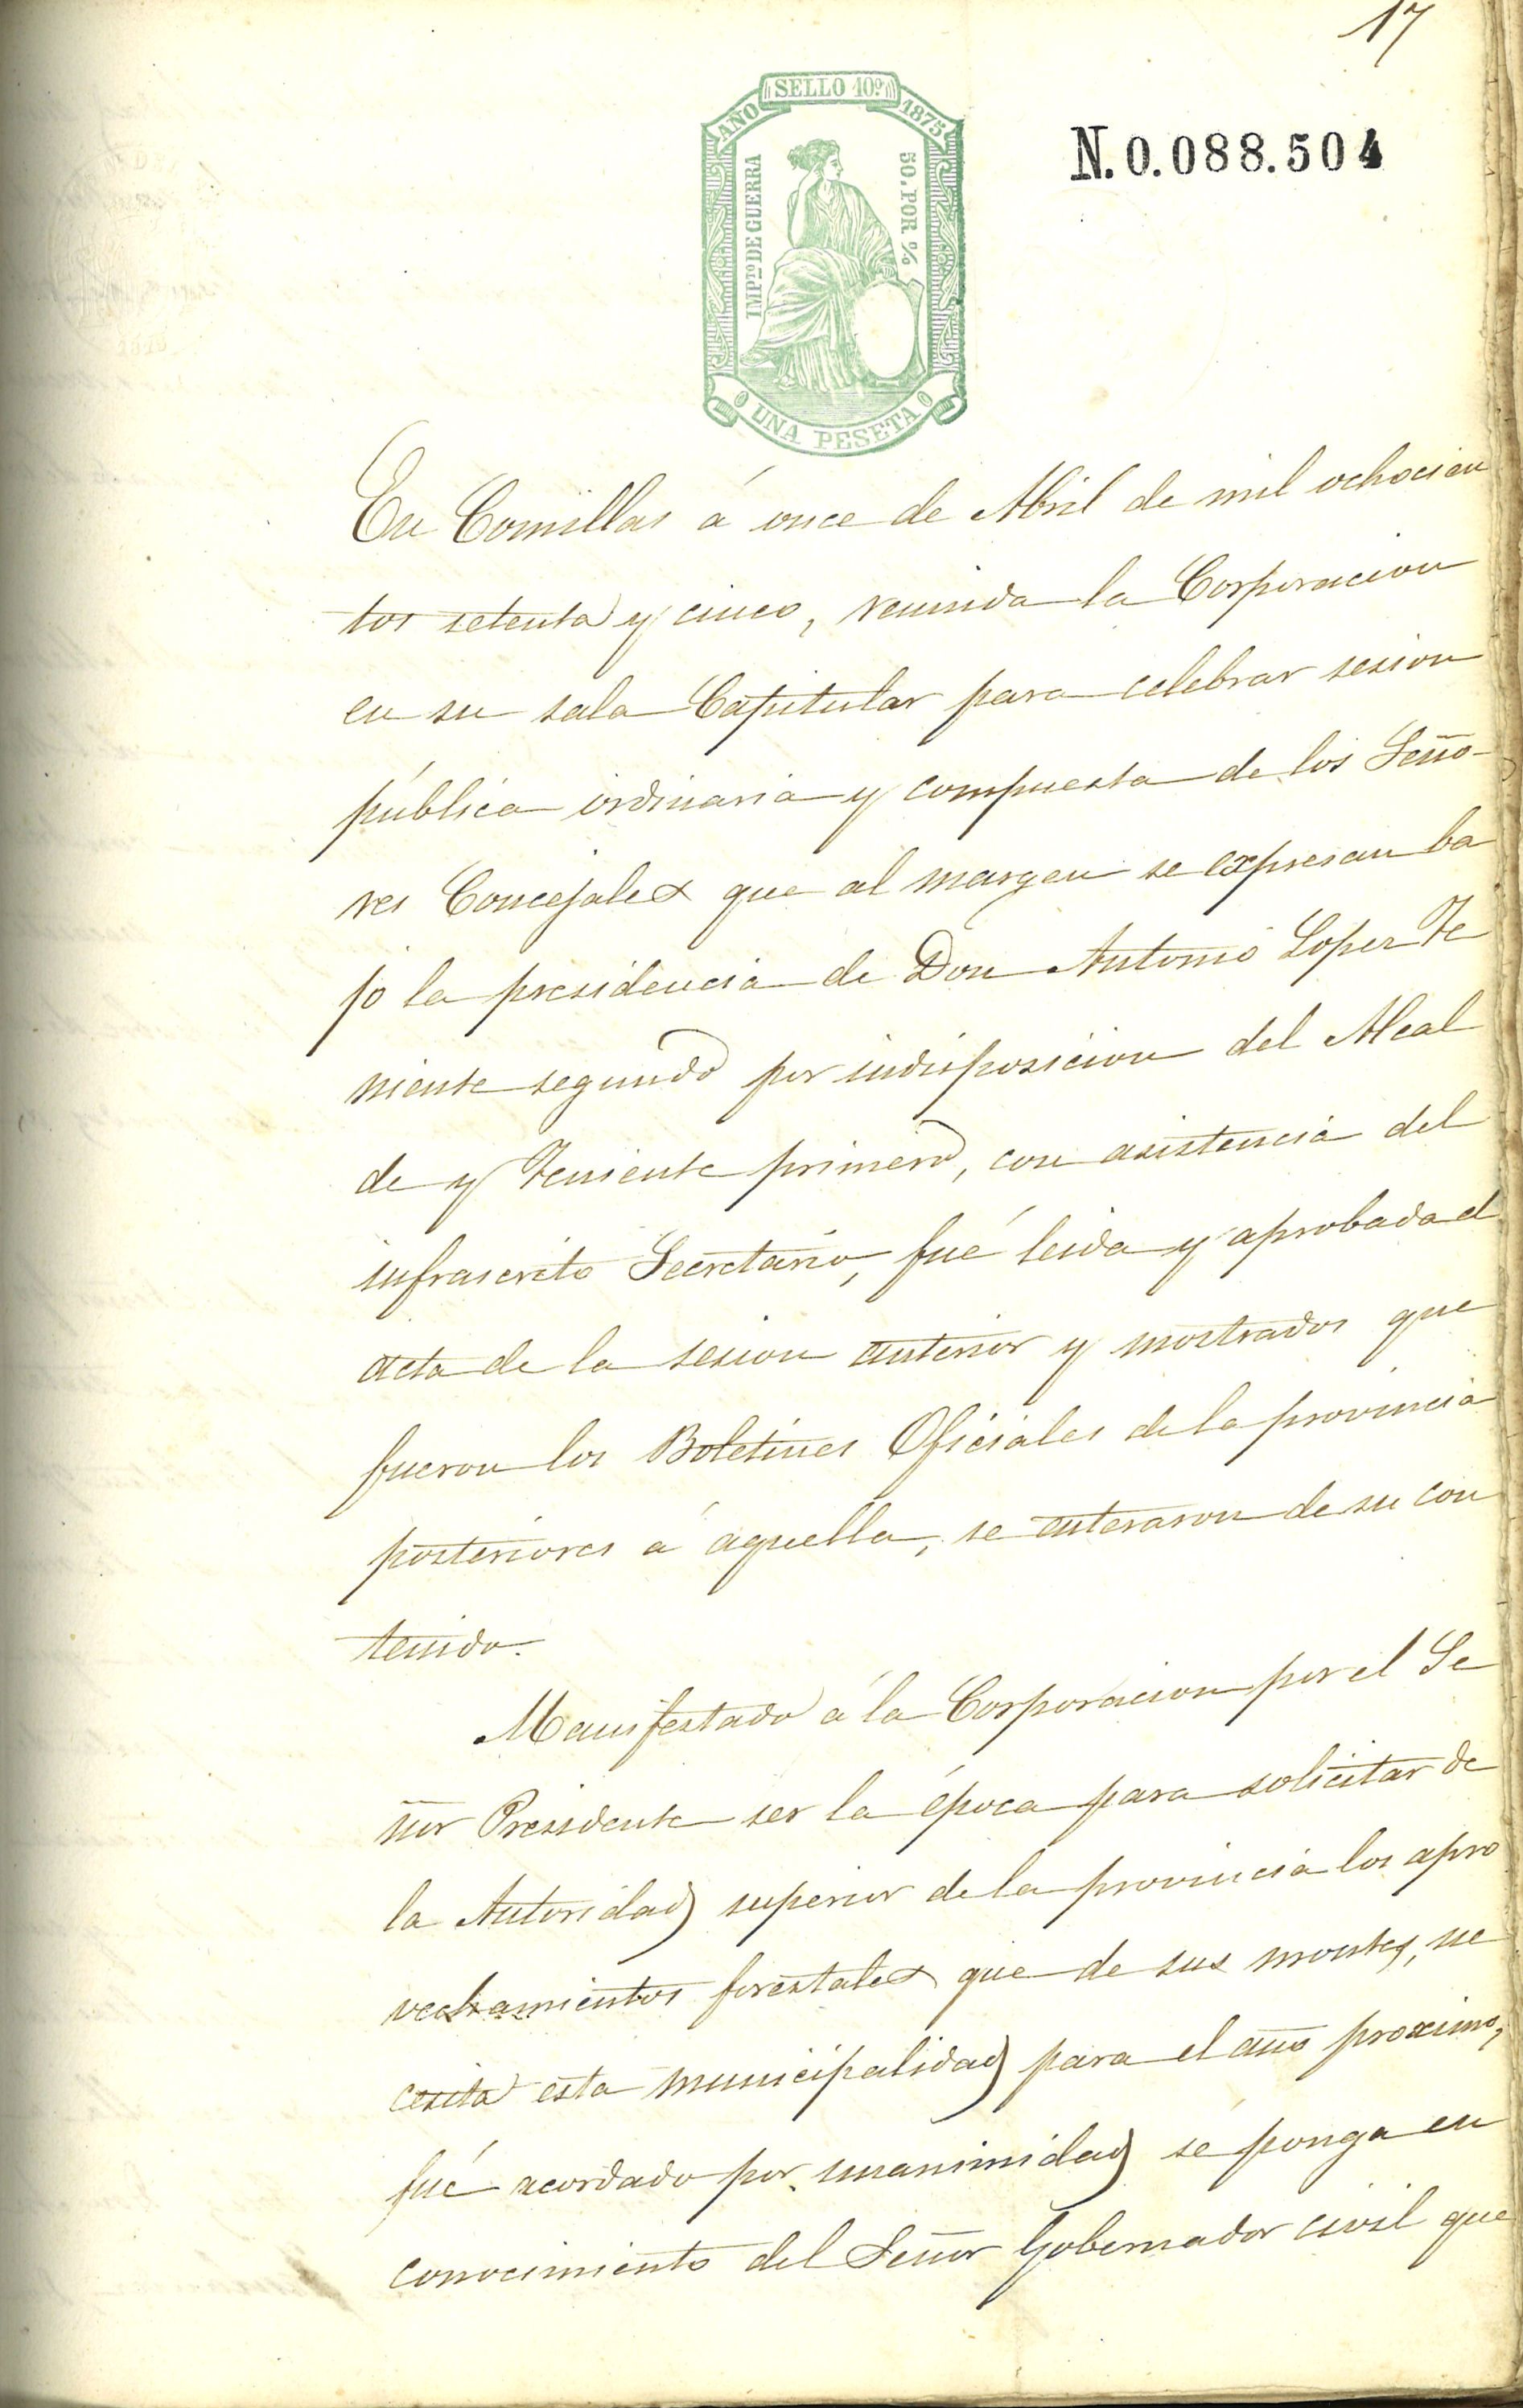 17
SELLO 10º
AÑO 1875
N.0.088.504
IMPTO DE GUERRA
50.POR %
0 UNA PESETA 0
En Comillas á once de Abril de mil ochocien
tos setenta y cinco, reunida la Corporacion
en su sala Capitular para celebrar sesion
pública ordinaria y compuesta de los Seño-
res Concejales que al margen se expresan ba
jo la presidencia de Don Antonio Lopez Te
niente segundo por indisposicion del Alcal
de y Teniente primero, con asistencia del
infrascrito Secretario, fué leida y aprobada el
acta de la sesion anterior y mostrados que
fueron los Boletines Oficiales de la provincia
posteriores á aquella, se enteraron de su con
tenido.
Manifestado á la Corporacion por el Se
ñor Presidente ser la época para solicitar de
la Autoridad superior de la provincia los apro
vechamientos forestales que de sus montes, ne
cesita esta municipalidad para el año proximo,
fué acordado por unanimidad se ponga en
conocimiento del Señor Gobernador civil que